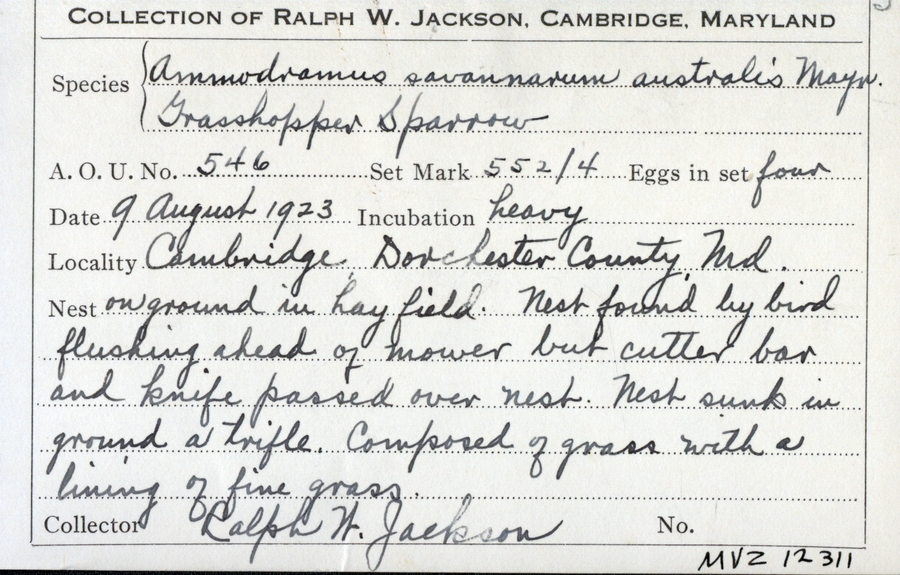 COLLECTION OF RALPH W. JACKSON, CAMBRIDGE, MARYLAND
Species Ammodramus savannarum australis Mayn.
Grasshopper Sparrow
A. O. U. No. 546 Set Mark 552/4 Eggs in set four
Date 9 August 1923 Incubation heavy
Locality Cambridge, Dorchester County, Md.
Nest on ground in hay field. Nest found by bird
flushing ahead of mower but cutter bar
and knife passed over nest. Nest sunk in
ground a trifle. Composed of grass with a
lining of fine grass.
Collector Ralph W. Jackson No.
MVZ 12311